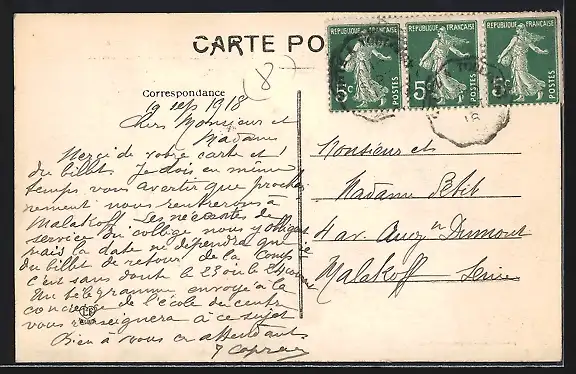 CARTE PO
(8)
Correspondance
19 sept 1918
Chers Monsieur et
Madame
Merci de votre carte et
du billet. Je dois en même
temps vous avertir que prochai
nement nous rentrerons à
Malakoff. Les nécessités de
service du collège nous y obligent
mais la date ne dépendra que
du billet de retour de la
c'est sans doute le 23 ou le 25
Un télégramme envoyé à la
concierge de l'école du centre
vous renseignera à ce sujet
Bien à vous en attendant
REPUBLIQUE FRANÇAISE
5c
POSTES
REPUBLIQUE FRANÇAISE
5c
POSTES
REPUBLIQUE FRANÇAISE
5c
POSTES
18
Monsieur et
Madame Petit
4 av. Aug Dumont
Malakoff Seine